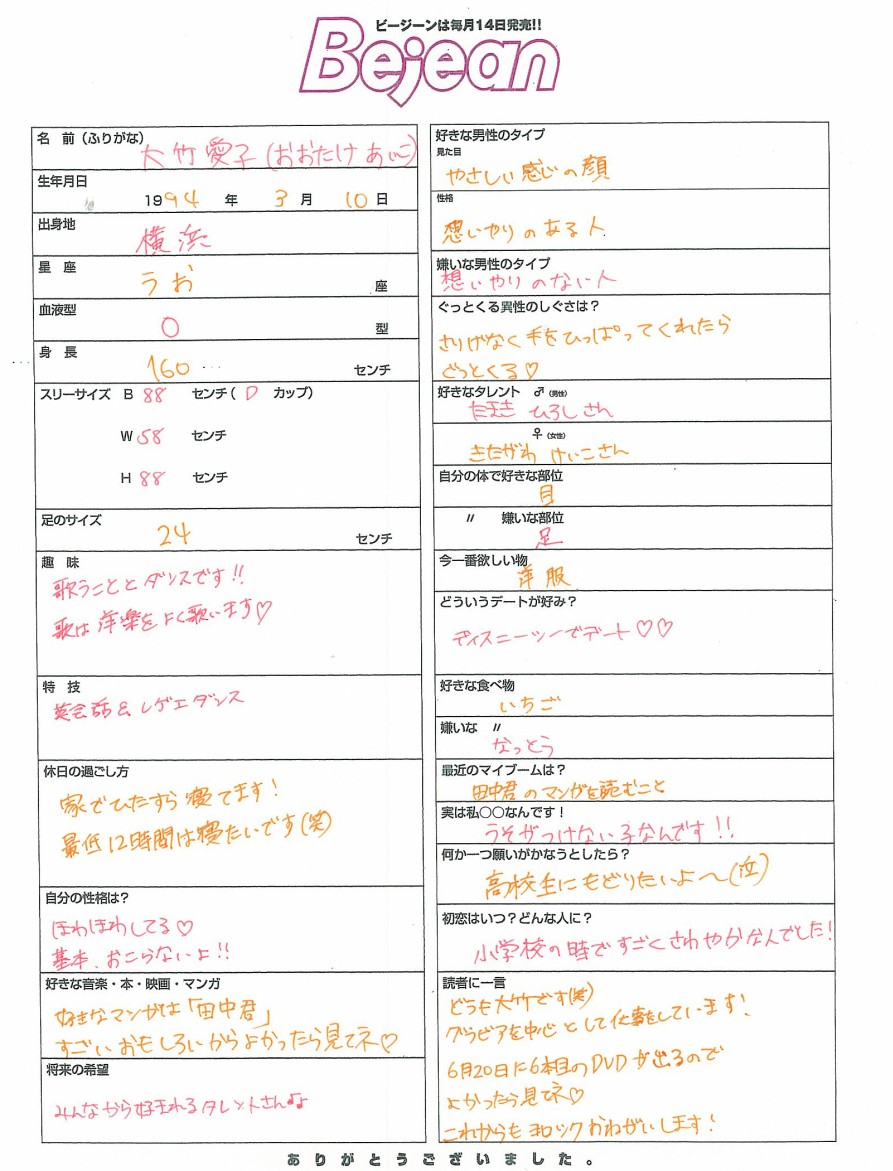 ビージーンは毎月14日発売!!
Bejean
名 前(ふりがな)
大竹愛子(おおたけ あいこ)
生年月日
1994 年 3 月 10 日
出身地
横浜
星 座
うお 座
血液型
O 型
身 長
160 センチ
スリーサイズ B 88 センチ( D カップ)
W 58 センチ
H 88 センチ
足のサイズ
24 センチ
趣 味
歌うこととダンスです!!
歌は洋楽をよく歌います♡
特 技
英会話&レゲエダンス
休日の過ごし方
家でひたすら寝てます!
最低12時間は寝たいです(笑)
自分の性格は?
ほわほわしてる♡
基本、おこらないよ!!
好きな音楽・本・映画・マンガ
好きなマンガは「田中君」
すごいおもしろいからよかったら見てネ♡
将来の希望
みんなから好まれるタレントさん♪
好きな男性のタイプ
見た目
やさしい感じの顔
性格
想いやりのある人
嫌いな男性のタイプ
想いやりのない人
ぐっとくる異性のしぐさは?
さりげなく手をひっぱってくれたら
どっとくる♡
好きなタレント ♂(男性)
たまき ひろしさん
♀(女性)
きたがわ けいこさん
自分の体で好きな部位
目
〃 嫌いな部位
足
今一番欲しい物
洋服
どういうデートが好み?
ディズニーシーでデート♡♡
好きな食べ物
いちご
嫌いな 〃
なっとう
最近のマイブームは?
田中君のマンガを読むこと
実は私○○なんです!
うそがつけない子なんです!!
何か一つ願いがかなうとしたら?
高校生にもどりたいよ〜(泣)
初恋はいつ?どんな人に?
小学校の時ですごくさわやかな人でした!
読者に一言
どうも大竹です(笑)
グラビアを中心として仕事をしています!
6月20日に6本目のDVDが出るので
よかったら見てネ♡
これからもヨロシクおねがいします!
ありがとうございました。